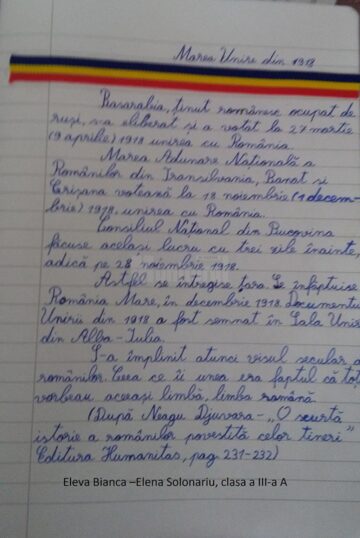 Marea Unire din 1918
Basarabia, ținut românesc ocupat de
ruși, s-a eliberat și a votat la 27 martie
(9 aprilie) 1918 unirea cu România.
Marea Adunare Națională a
Românilor din Transilvania, Banat și
Crișana votează la 18 noiembrie (1 decem-
brie) 1918, unirea cu România.
Consiliul Național din Bucovina
făcuse același lucru cu trei zile înainte,
adică pe 28 noiembrie 1918.
Astfel se întregise țara. Se înfăptuise
România Mare, în decembrie 1918. Documentu
Unirii din 1918 a fost semnat în Sala Unir
din Alba-Iulia.
S-a împlinit atunci visul secular a
românilor. Ceea ce îi unea era faptul că toț
vorbeau aceeași limbă, limba română.
(După Neagu Djuvara-„O scurtă
istorie a românilor povestită celor tineri"
Editura Humanitas, pag. 231-232)
Eleva Bianca –Elena Solonariu, clasa a III-a A